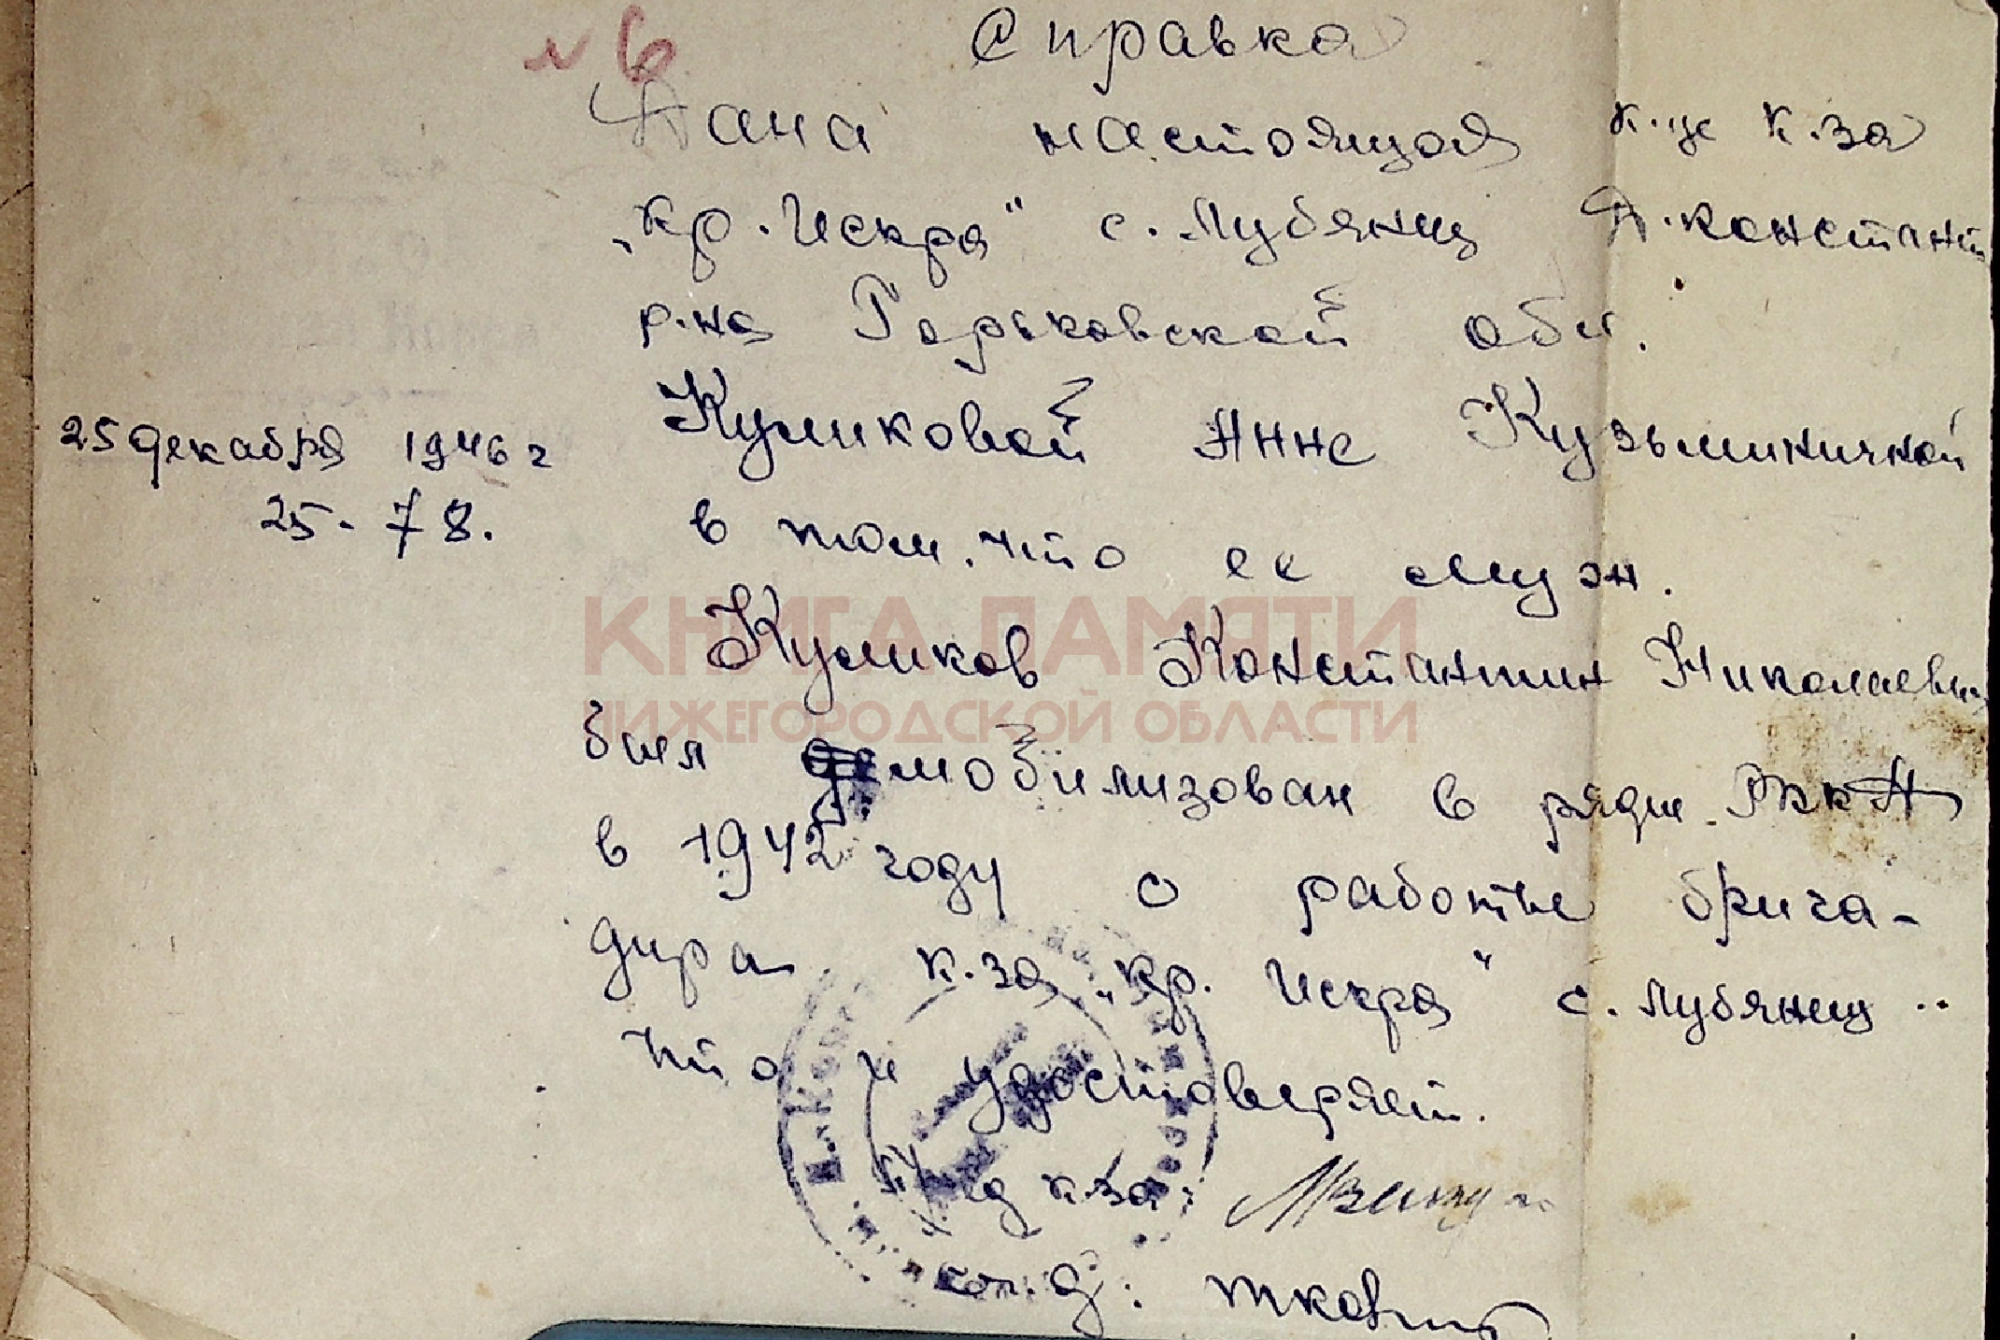 № 6
Справка
Дана настоящая к-це к-за
„Кр. Искра" с. Лубянцы Д.Констант
р-на Горьковской обл.
25 декабря 1946 г
25-78.
Куликовой Анне Кузьминичной
в том, что ее муж.
Куликов Константин Николаевич
был мобилизован в ряды РККА
в 1942 году с работы брига-
дира к-за „Кр. Искра" с. Лубянцы
что и удостоверяет.
Пред к-за:
КНИГА ПАМЯТИ
НИЖЕГОРОДСКОЙ ОБЛАСТИ